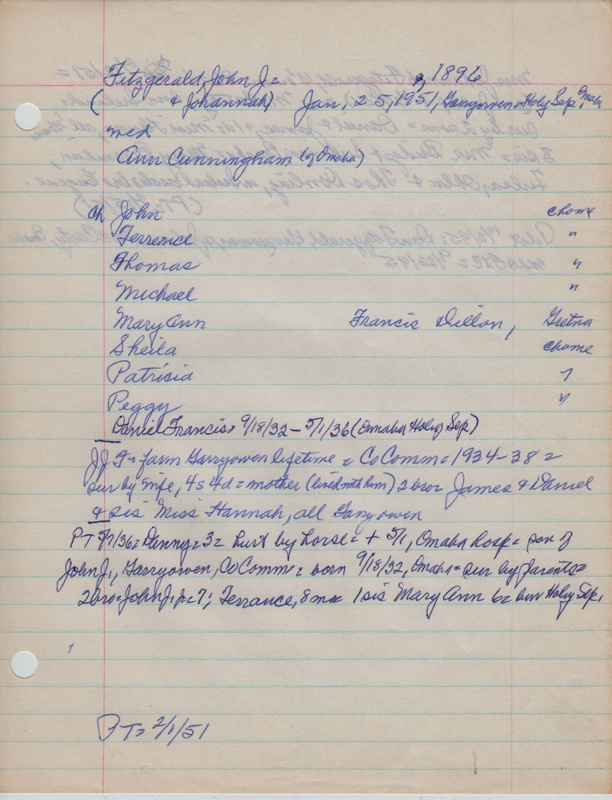 Fitzgerald John J = , 1896
( & Johannah) Jan, 25, 1951, Garryowen = Holy Sep, Omaha
med
Ann Cunningham (of Omaha)
ch John chome
Terrence "
Thomas "
Michael "
Mary Ann Francis Dillon, Gretna
Sheila chome
Patricia "
Peggy "
Daniel Francis = 9/18/32 - 5/1/36 (Omaha Holy Sep)
JJF = farm Garryowen lifetime = CoComm = 1934-38 =
sur by wife, 4s 4d = mother (lived with him) 2 bro = James & Daniel
& sis Miss Hannah, all Garryowen
PT 5/7/36 = Danny = 3 = hurt by horse = + 5/1, Omaha hosp = son of
John J, Garryowen, CoComm = born 9/18/32, Omaha = sur by parents =
2 bro = John J, jr = 7; Terrance, 8 mo = 1 sis Mary Ann 6 = bur Holy Sep,
PT = 2/1/51